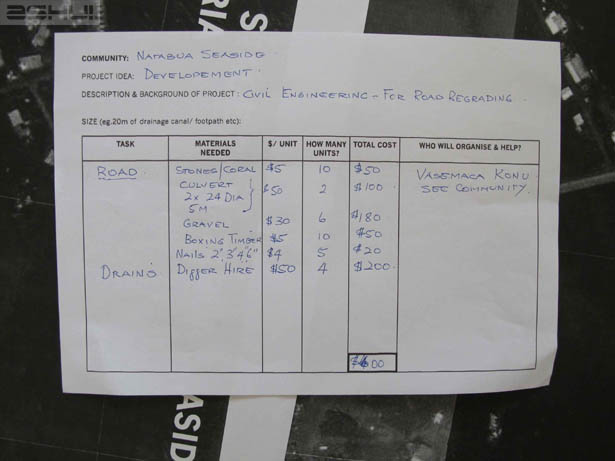 COMMUNITY: NATABUA SEASIDE
PROJECT IDEA: DEVELOPEMENT
DESCRIPTION & BACKGROUND OF PROJECT: CIVIL ENGINEERING - FOR ROAD REGRADING
SIZE (eg.20m of drainage canal/ footpath etc):
TASK MATERIALS NEEDED $/ UNIT HOW MANY UNITS? TOTAL COST WHO WILL ORGANISE & HELP?
ROAD STONES/CORAL $5 10 $50 VASEMACA KONU
CULVERT $50 2 $100 SEC COMMUNITY
2x 24 DIA
5M
GRAVEL $30 6 $180
BOXING TIMBER $5 10 $50
NAILS 2" 3" 4" 6" $4 5 $20
DRAINS DIGGER HIRE $50 4 $200
ASID